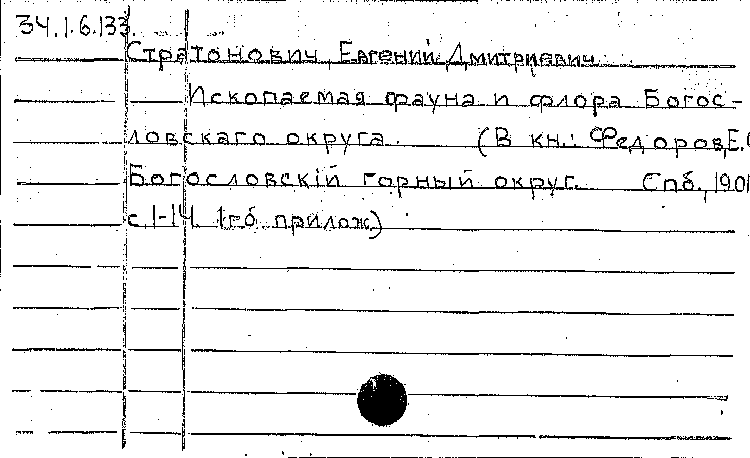 34.1.6.133.
Стратонович, Евгений Дмитриевич.
Ископаемая фауна и флора Богос-
ловскаго округа. (В кн.: Федоров, Е.
Богословскій горный округ. Спб., 1901
с. 1-14. 1-го прилож.)